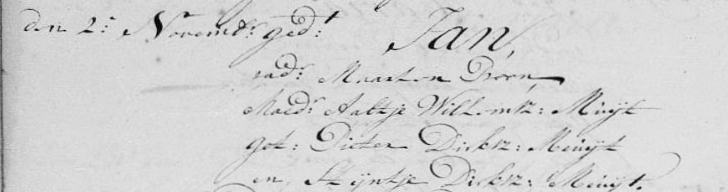 den 2: Novemb: ged: Jan,
vadr: Maarten Droon,
Moedr: Aaltje Willemtz: Muijt
get: Pieter Dirksz: Muijt
en, Stijntje Dirksz: Muijt.